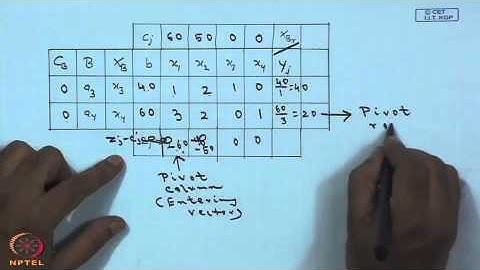 © CET
I.I.T. KGP
Cj 60 50 0 0 XBr
CB B XB b x1 x2 x3 x4 Yj
0 a3 x3 40 1 2 1 0 40/1 = 40
0 a4 x4 60 3 2 0 1 60/3 = 20 → Pivot
zj-cj -60 -50 0 0
Pivot
column
(Entering
vector)
NPTEL